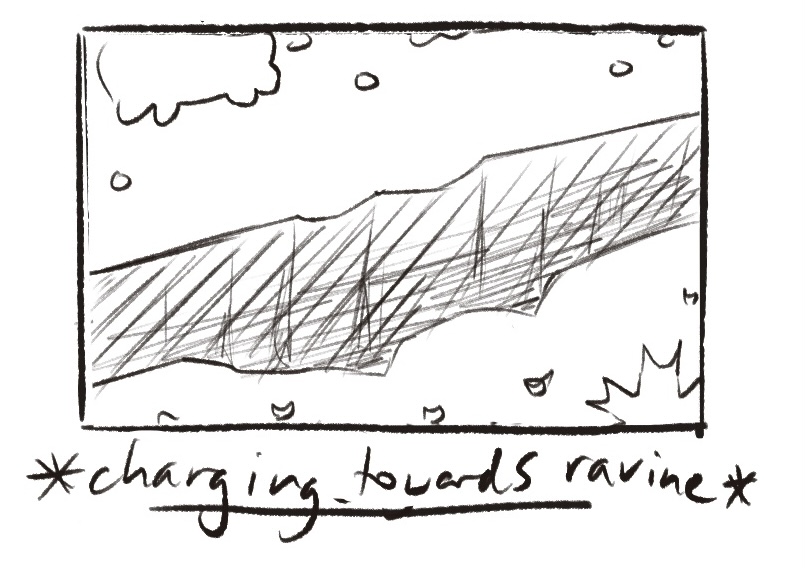 *charging towards ravine*